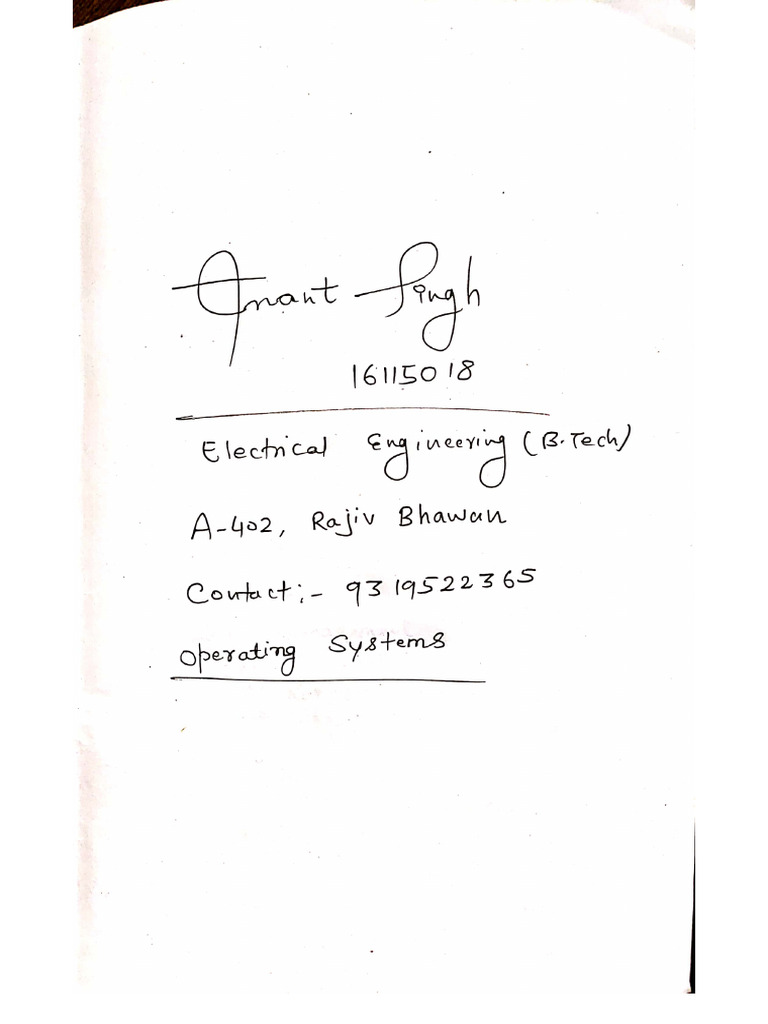 Anant Singh
16115018
Electrical Engineering (B.Tech)
A-402, Rajiv Bhawan
Contact:- 9319522365
Operating Systems